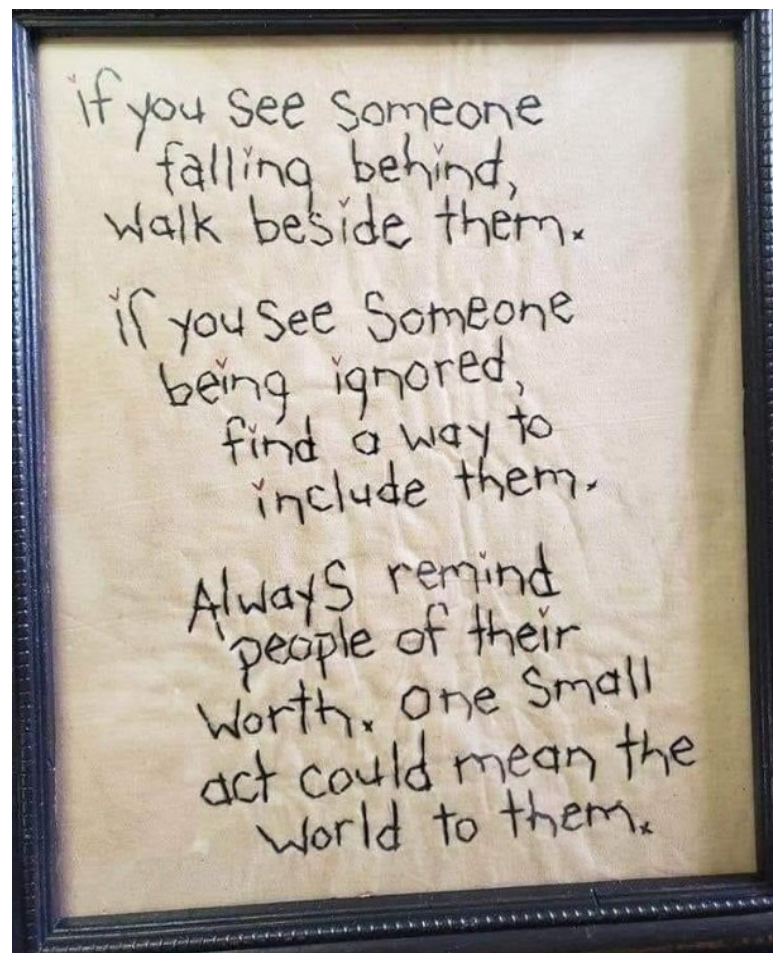 if you see someone
falling behind,
walk beside them.
if you see someone
being ignored,
find a way to
include them.
Always remind
people of their
worth. one small
act could mean the
world to them.